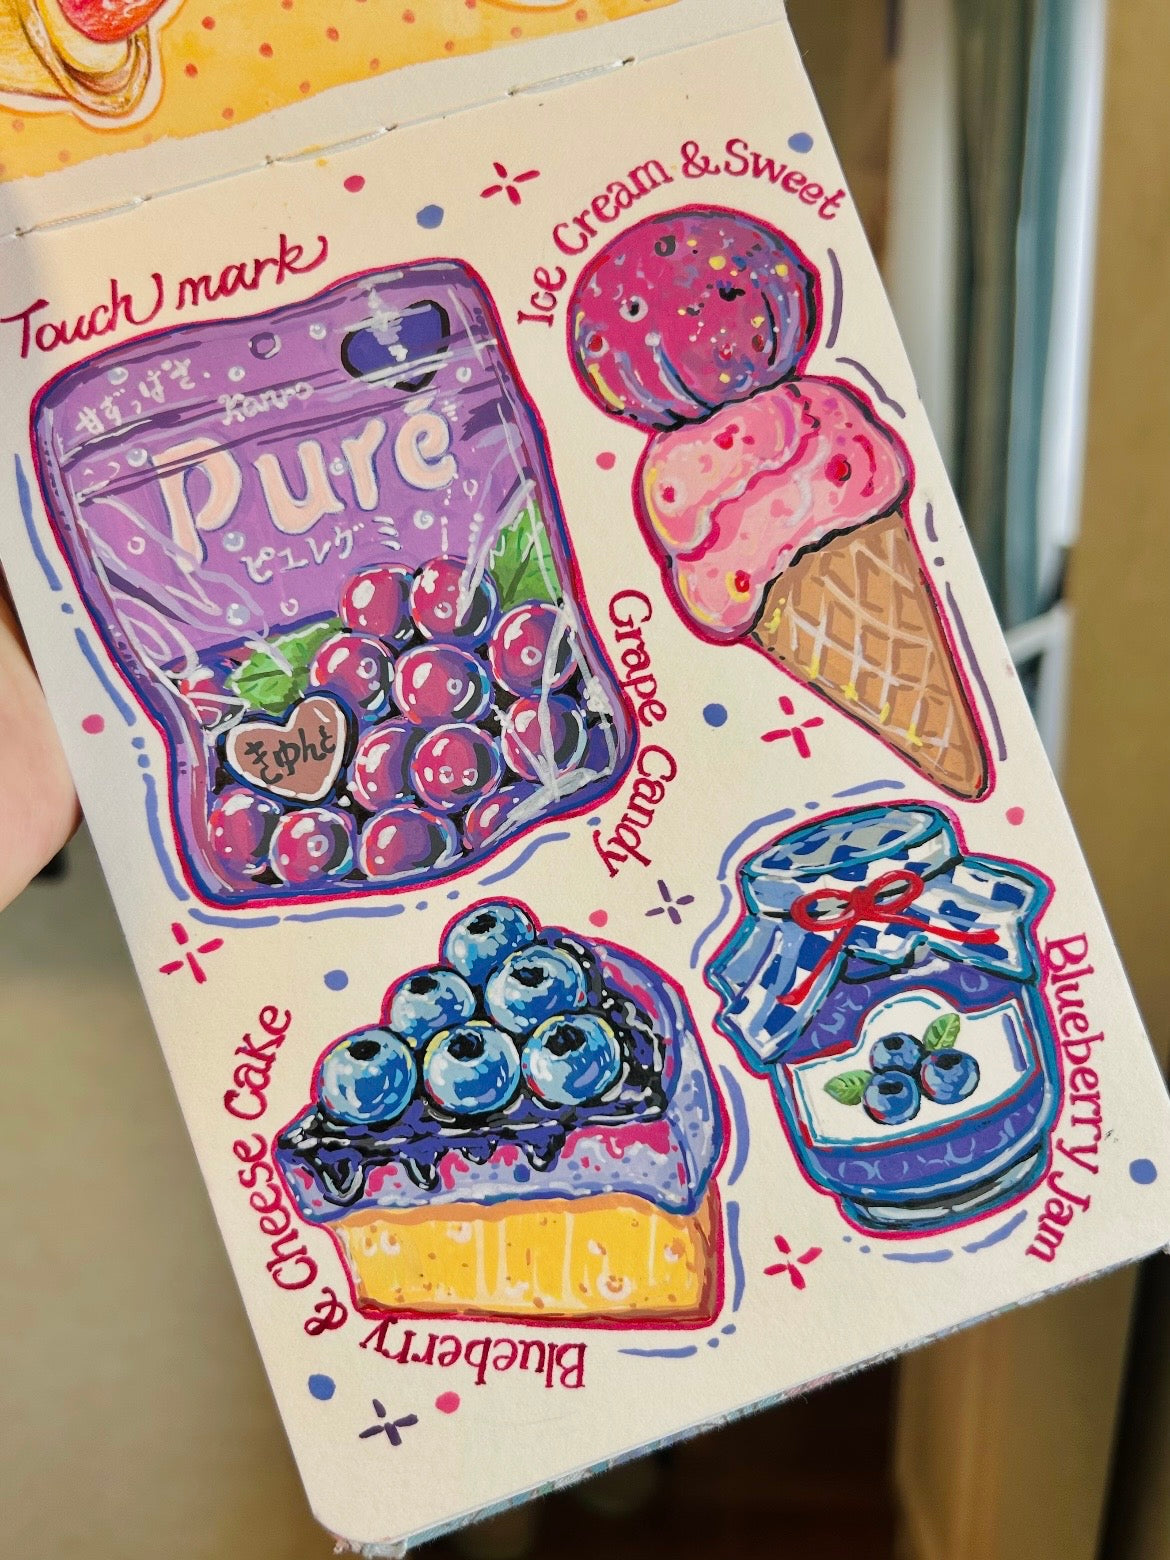 Touch mark
甘ずっぱさ.
Kanro
Puré
ピュレグミ
きゅんと
Grape Candy
Ice Cream & Sweet
Blueberry & Cheese Cake
Blueberry Jam